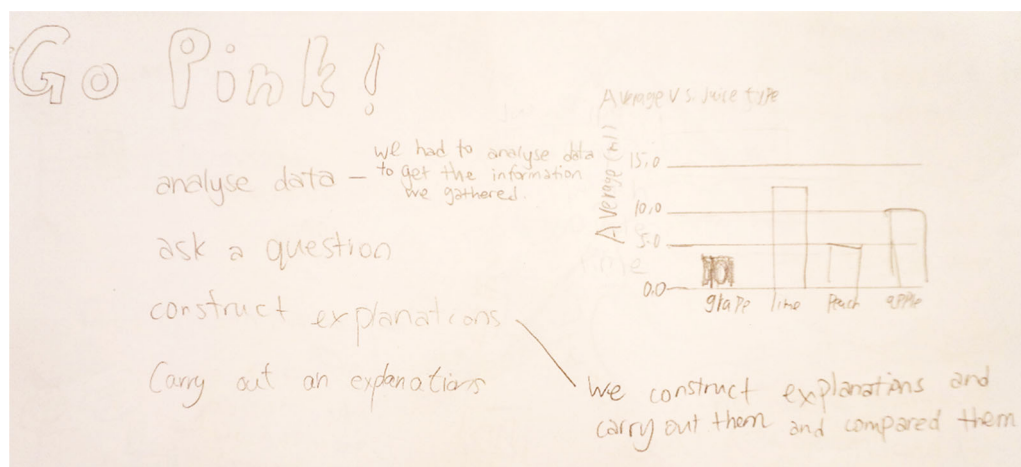 Go Pink!
analyse data – we had to analyse data
to get the information
we gathered.
ask a question
construct explanations
Carry out an explanations
We construct explanations and
carry out them and compared them
Average vs. juice type
Average
15.0
10.0
5.0
0.0
grape lime Peach apple